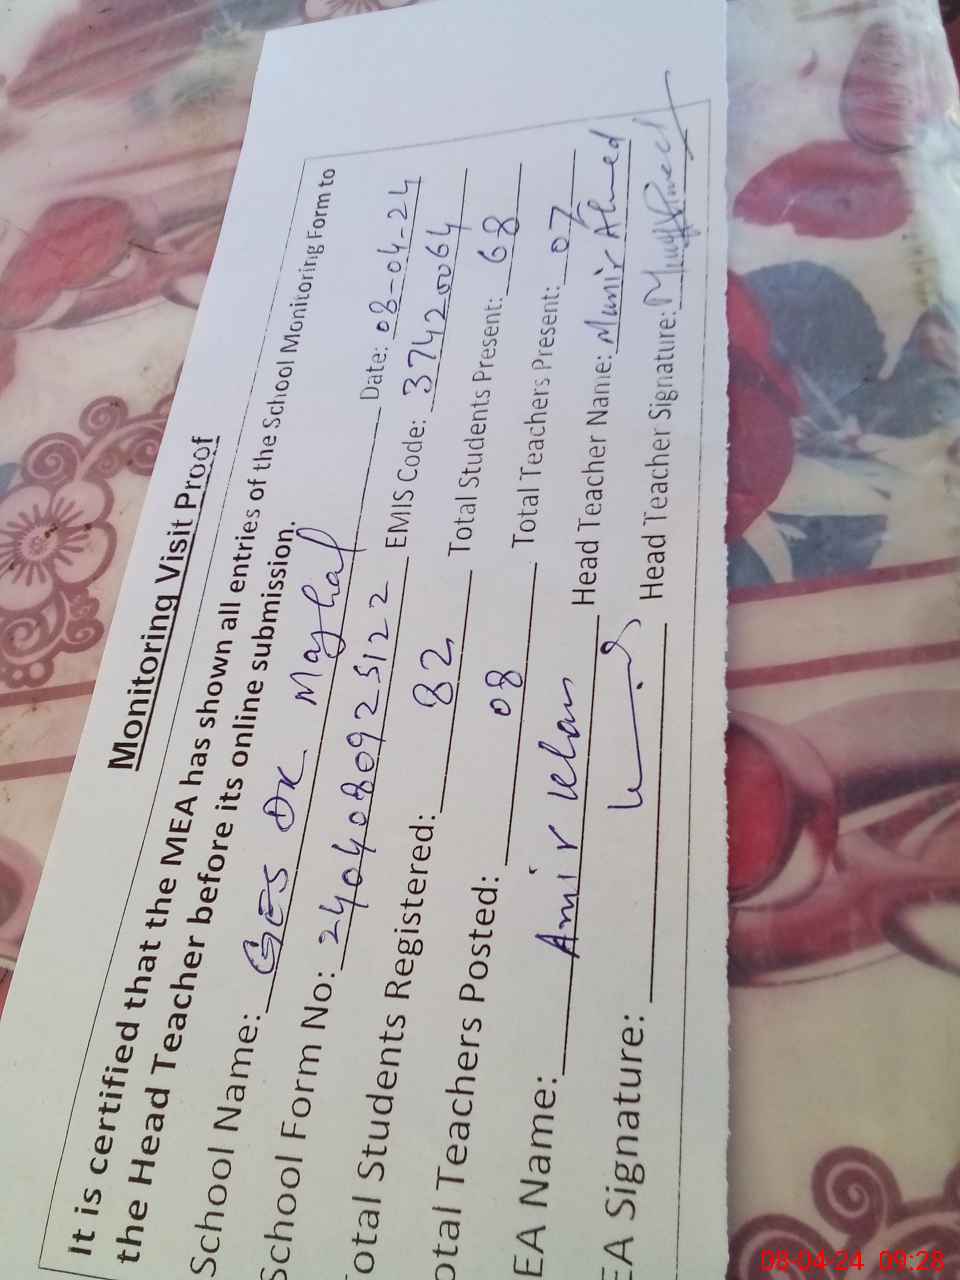 Monitoring Visit Proof
It is certified that the MEA has shown all entries of the School Monitoring Form to
the Head Teacher before its online submission.
School Name: GES DK Maghal Date: 08-04-24
School Form No: 2404080925122 EMIS Code: 37420064
otal Students Registered: 82 Total Students Present: 68
otal Teachers Posted: 08 Total Teachers Present: 07
EA Name: Amir Khan Head Teacher Name: Munir Ahmed
EA Signature: Head Teacher Signature:
08-04-24 09:28